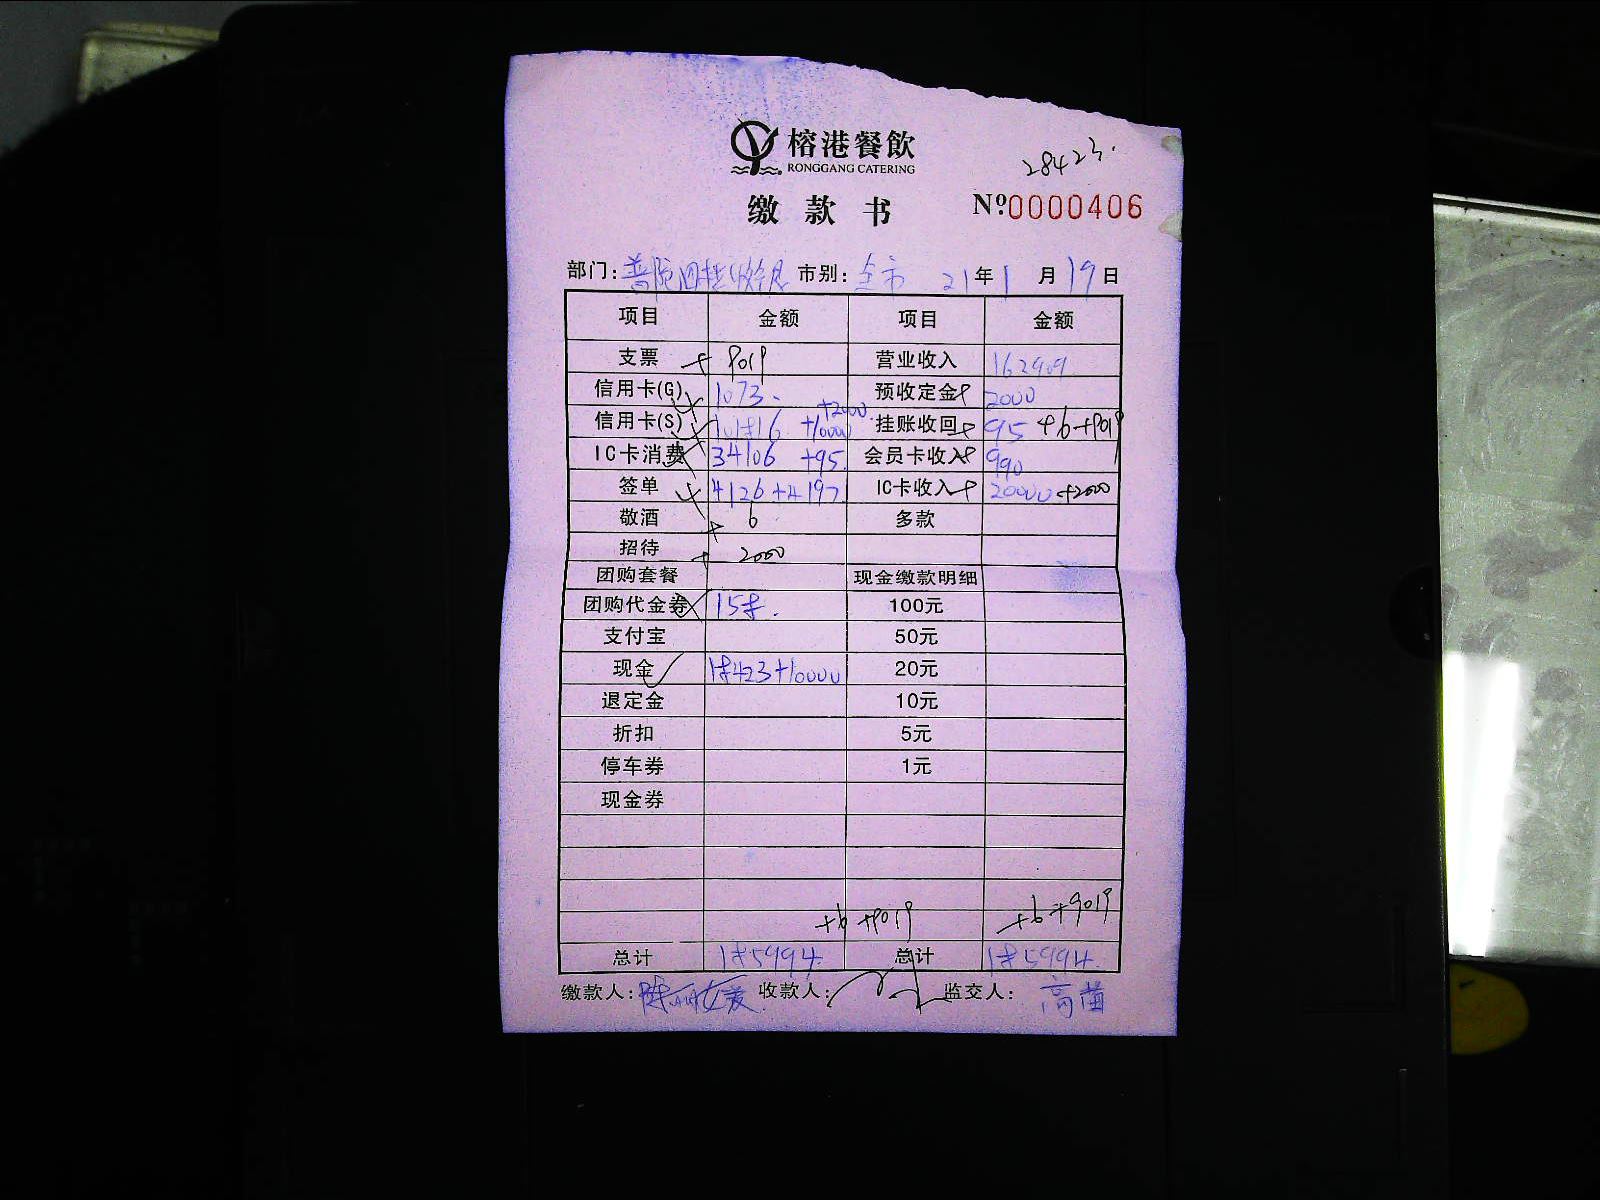 榕港餐飲
RONGGANG CATERING
28423.
缴款书 Nº0000406
部门: 市别: 全市 21年1月19日
项目 金额 项目 金额
支票 + 9019 营业收入 162909
信用卡(G) 1073. 预收定金 2000
+2000.
信用卡(S) +10000 挂账收回 95 +6+9019
IC卡消费 34106 +95. 会员卡收入 990
签单 4126+4197 IC卡收入 20000+2000
敬酒 + 6 多款
招待 + 2000
团购套餐 现金缴款明细
团购代金券 158. 100元
支付宝 50元
现金 18423+10000 20元
退定金 10元
折扣 5元
停车券 1元
现金券
+6 +9019 +6+9019
总计 185994. 总计 185994.
缴款人: 收款人: 监交人: